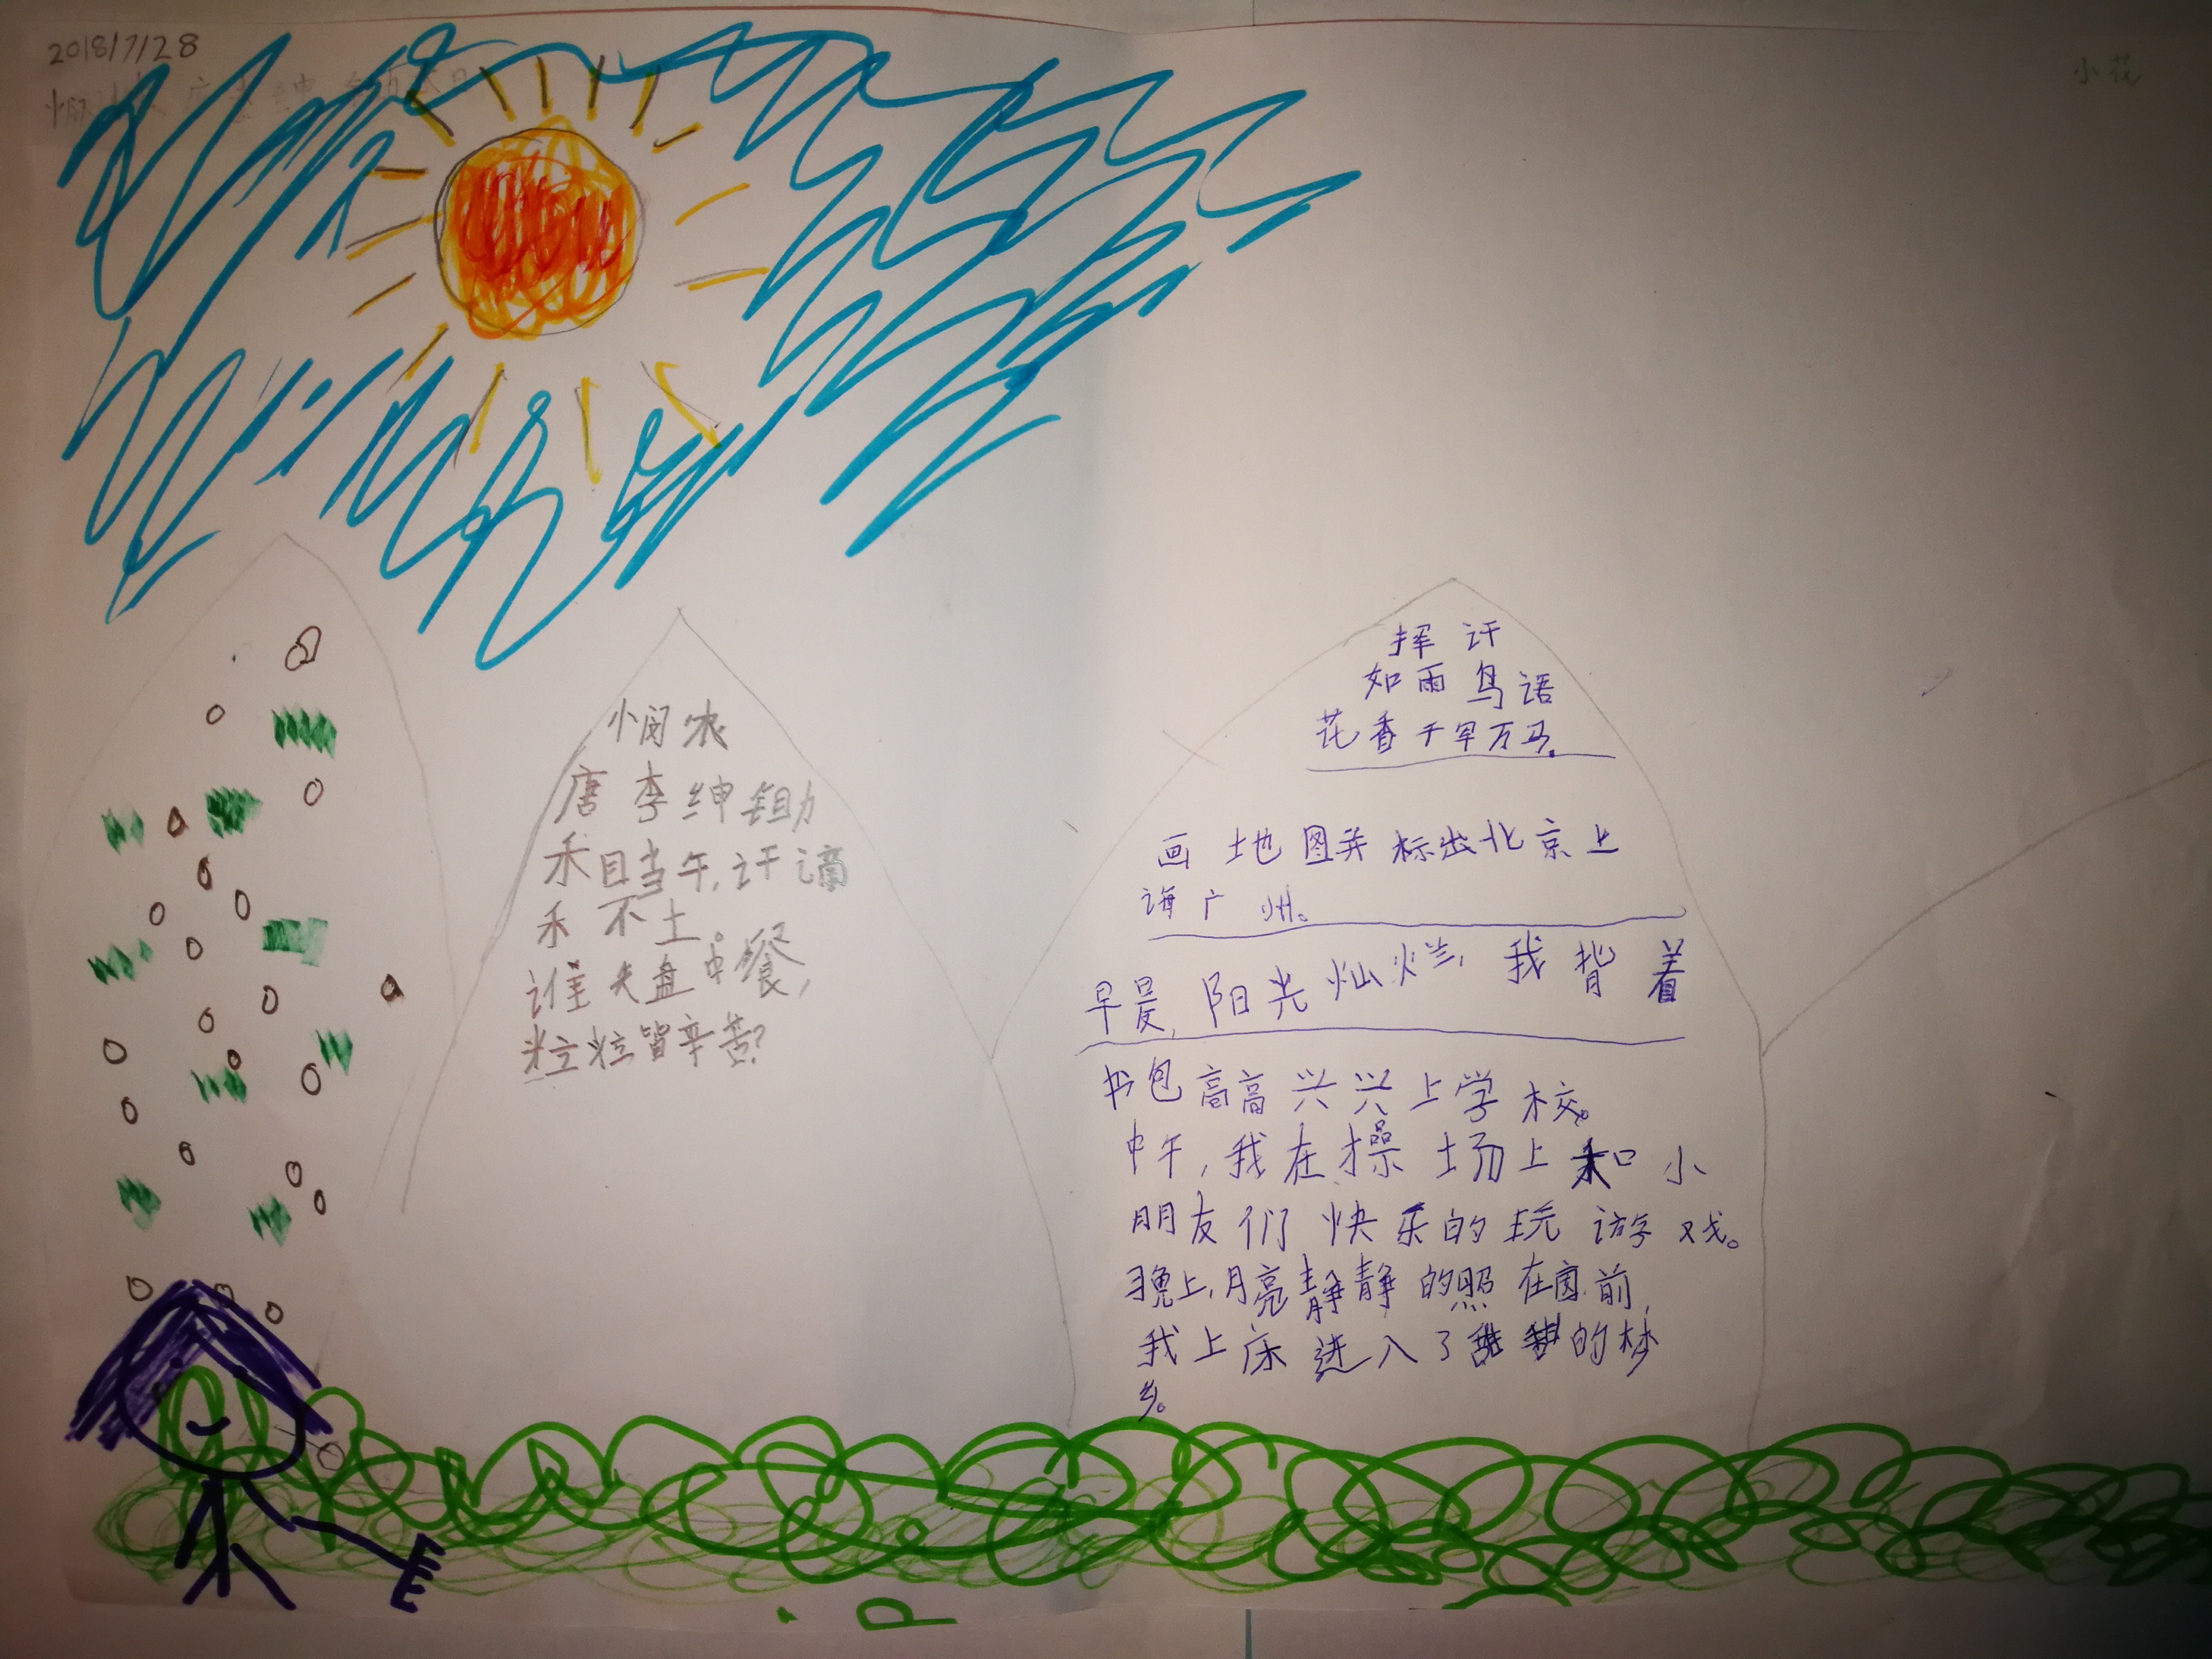 2018/7/28
小花
悯农
唐 李绅 锄
禾日当午,汗滴
禾下土。
谁知盘中餐,
粒粒皆辛苦?
挥汗
如雨鸟语
花香千军万马.
画地图并标出北京上
海广州。
早晨,阳光灿烂,我背着
书包高高兴兴上学校。
中午,我在操场上和小
朋友们快乐的玩游戏。
晚上,月亮静静的照在窗前,
我上床进入了甜甜的梦
乡。